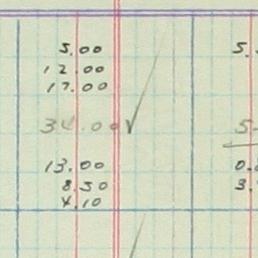 5.00
12.00
17.00
34.00 √
13.00
8.50
4.10
5.
5
0.
3.